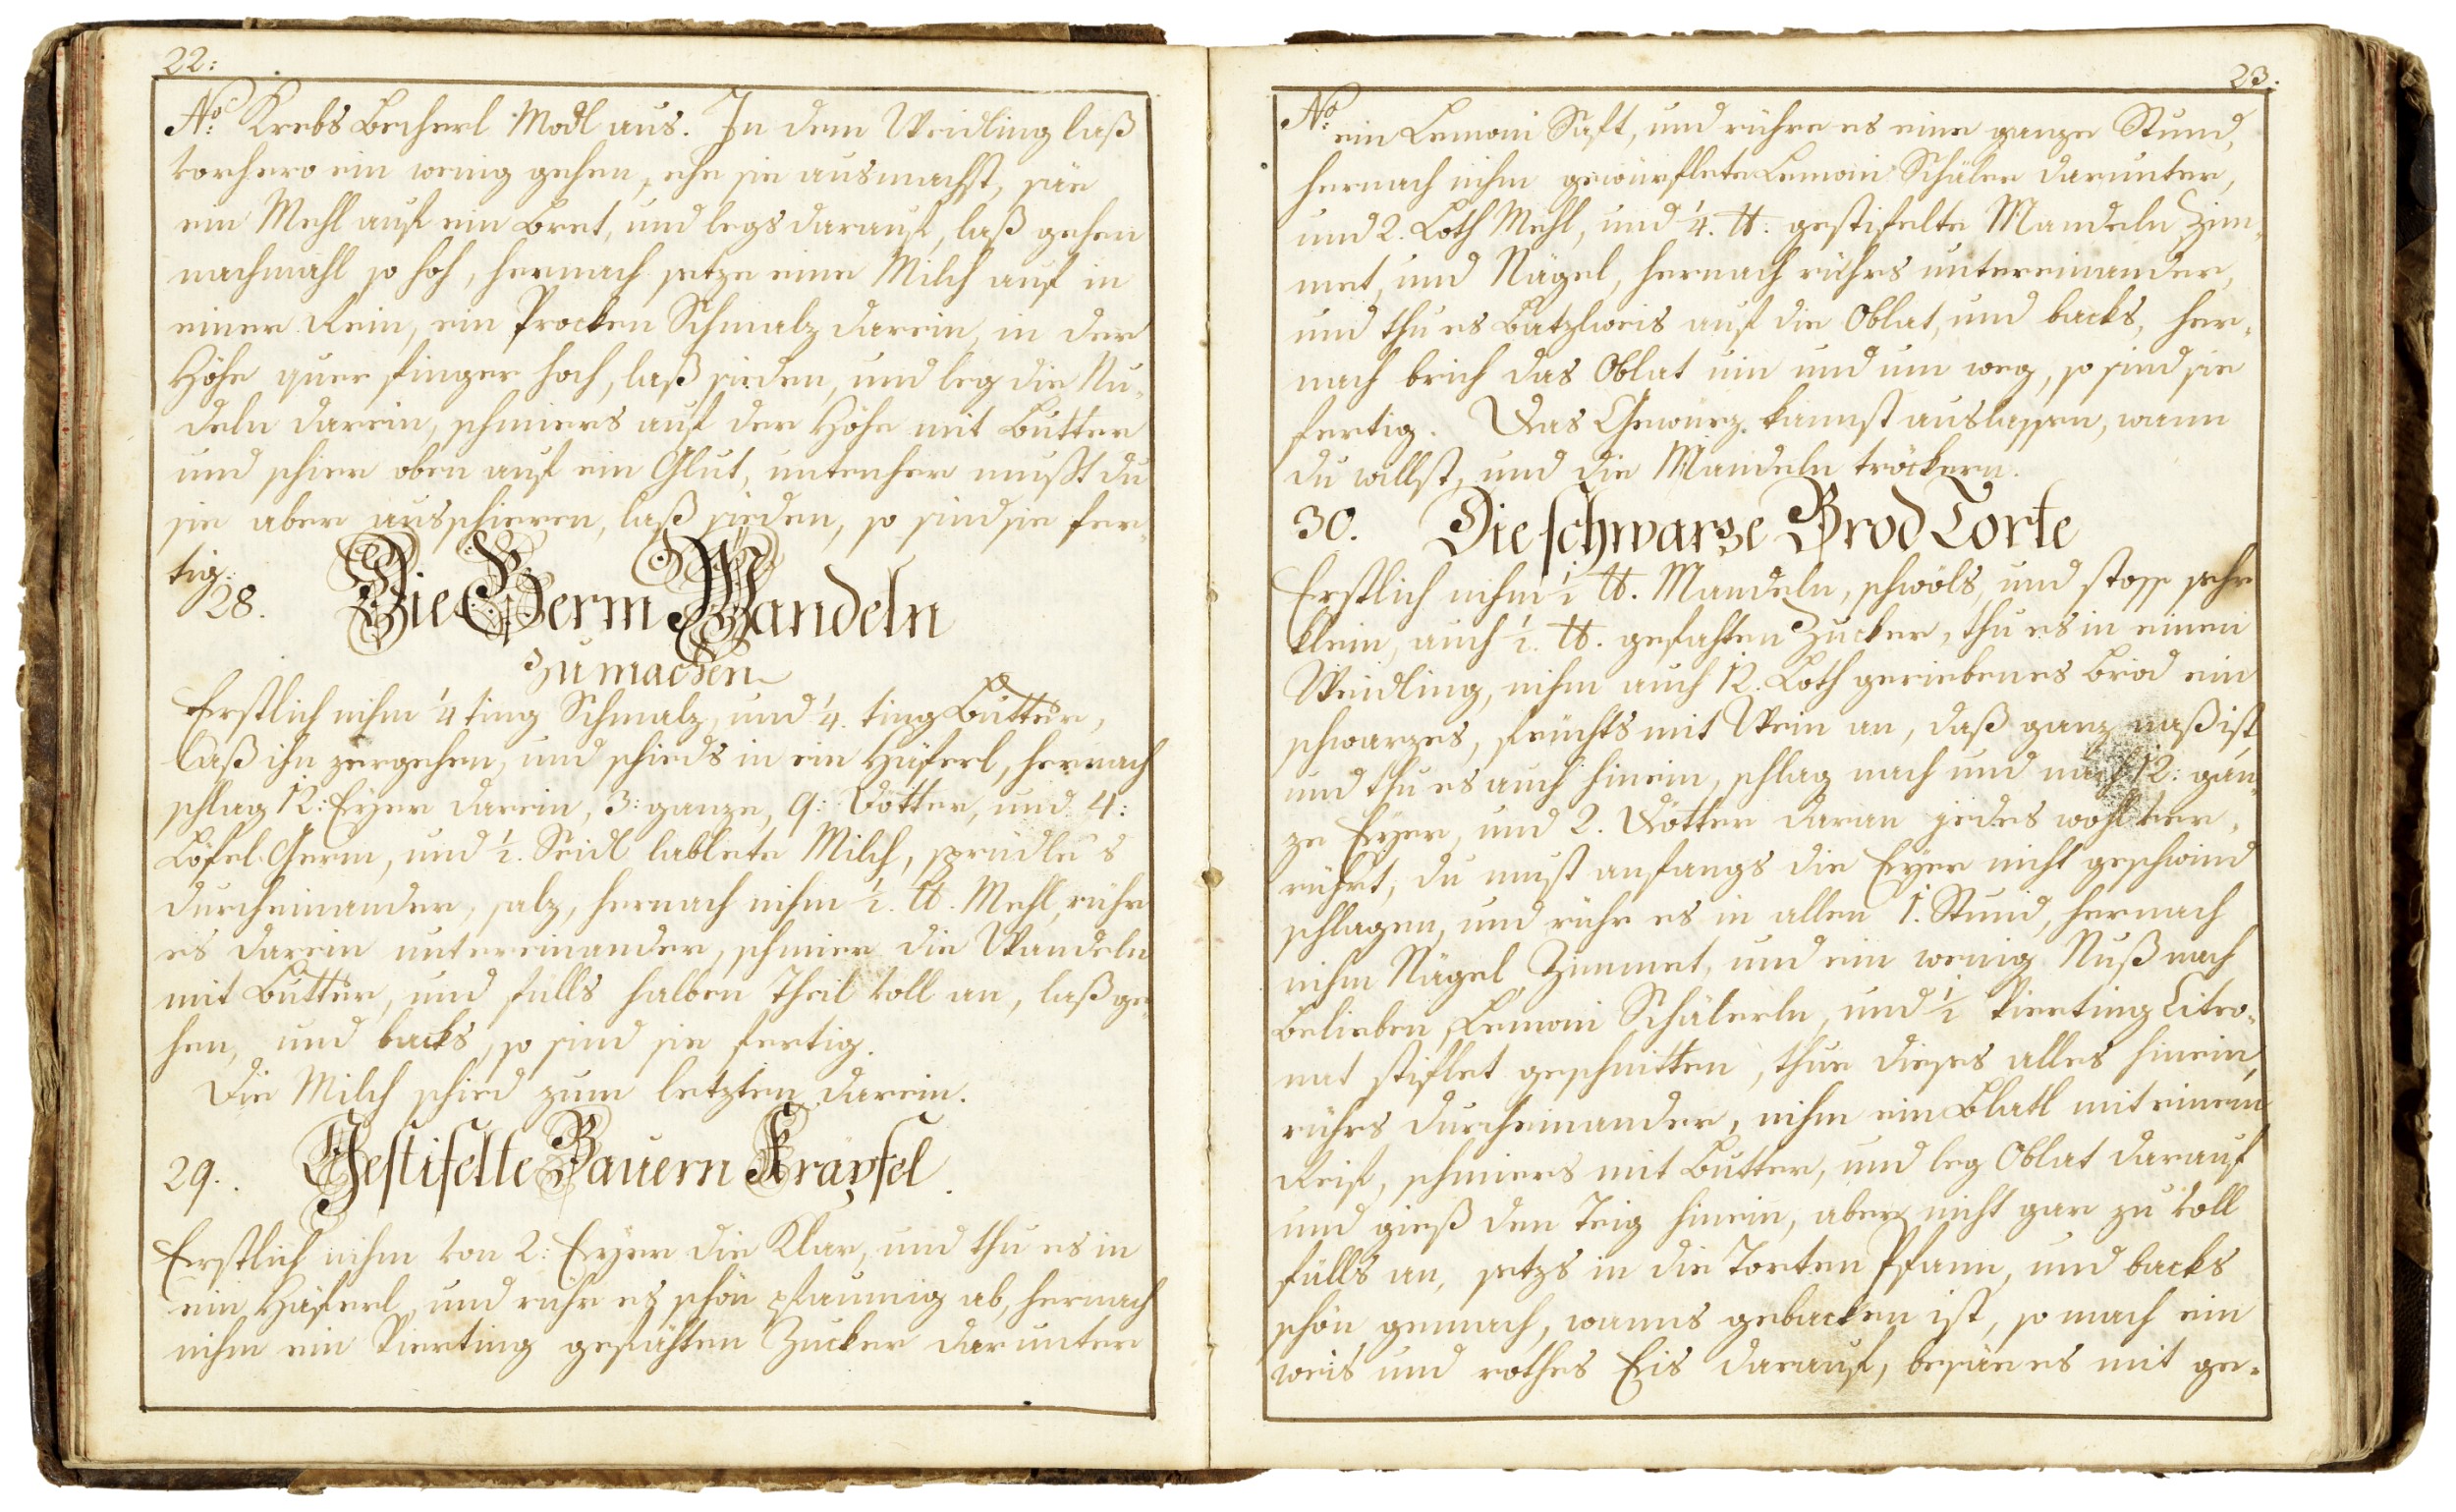 22:
No: Krebs Becherl Modl aus. In dem Weidling laß
vorhero ein wenig gehen, ehe sie ausmachst, säe
ein Mehl auf ein Bret, und legs darauf, laß gehen
nachmahl so hoch, hernach setze eine Milch auf in
einer Rein, ein Brocken Schmalz darein, in der
Höhe quer finger hoch, laß sieden, und leg die Nu-
deln darein, schmiers auf der Höhe mit Butter
und schier oben auf ein Glut, untenher mußt du
sie aber ausschieren, laß sieden, so sind sie fer-
tig.
28. Die Germ Wandeln
zu machen
Erstlich nihm 1/4 ting Schmalz, und 1/4. ting Butter,
laß ihn zergehen, und schieds in ein Häferl, hernach
schlag 12: Eyer darein, 3: ganze, 9: Dötter, und 4:
Löfel Germ, und 1/2. Seidl lablete Milch, sprudle's
durcheinander, salz, hernach nihm 1/2. ℔. Mehl, rühr
es darein untereinander, schmier die Wandeln
mit Butter, und fülls halben Theil voll an, laß ge-
hen, und backs, so sind sie fertig.
Die Milch schied zum letzten darein.
29. Gestifelte Bauern Krapfel.
Erstlich nihm von 2: Eyer die Klar, und thu es in
ein Häferl, und rühr es schön pflaumig ab, hernach
nihm ein Vierting gefähten Zucker darunter
23:
No:
ein Lemoni Saft, und rühre es eine ganze Stund,
hernach nihm gewürflete Lemoni Schäler darunter,
und 2. Loth Mehl, und 1/4. ℔. gestifelte Mandeln, Zim-
met, und Nägel, hernach rührs untereinander,
und thu es Batzlweis auf die Oblat, und backs, her-
nach brich das Oblat um und um weg, so sind sie
fertig. Das Gewürz kannst auslassen, wann
du willst, und die Mandeln tröckern.
30. Die schwarze Brod Torte
Erstlich nihm 1/2 ℔. Mandeln, schwöls, und stosse sehr
klein, auch 1/2. ℔. gefahten Zucker, thu es in einen
Weidling, nihm auch 12. Loth geriebenes Brod ein
schwarzes, feuchts mit Wein an, daß ganz naß ist,
und thu es auch hinein, schlag nach und nach 12: gan-
ze Eyer, und 2. Dötter daran jedes wohl ver-
rührt, du must anfangs die Eyer nicht geschwind
schlagen, und rühr es in allen 1. Stund, hernach
nihm Nägel, Zimmet, und ein wenig Nuß nach
Belieben, Lemoni Schälerln, und 1/2 Vierting Citro-
nat stiflet geschnitten, thue dieses alles hinein,
rührs durcheinander, nihm ein Blatl mit einem
Reif, schmiers mit Butter, und leg Oblat darauf
und gieß den Teig hinein, aber nicht gar zu voll
fülls an, setzs in die Torten Pfann, und backs
schön gemach, wanns gebacken ist, so mach ein
weis und rothes Eis darauf, besäe es mit ge-